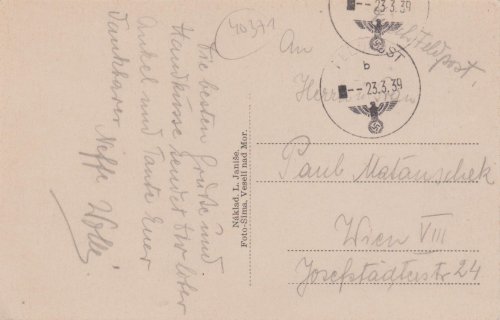 40371
Die besten Grüße und
Handküsse sendet Euch lieber
Onkel und Tante Euer
dankbarer Neffe Willi
Náklad. L. Janiše.
Foto-Šíma, Veselí nad Mor.
Feldpost
FELDPOST
b
-- 23.3.39
-- 23.3.39
An
Herrn
Paul Matauschek
Wien VIII
Josefstädterstr 24